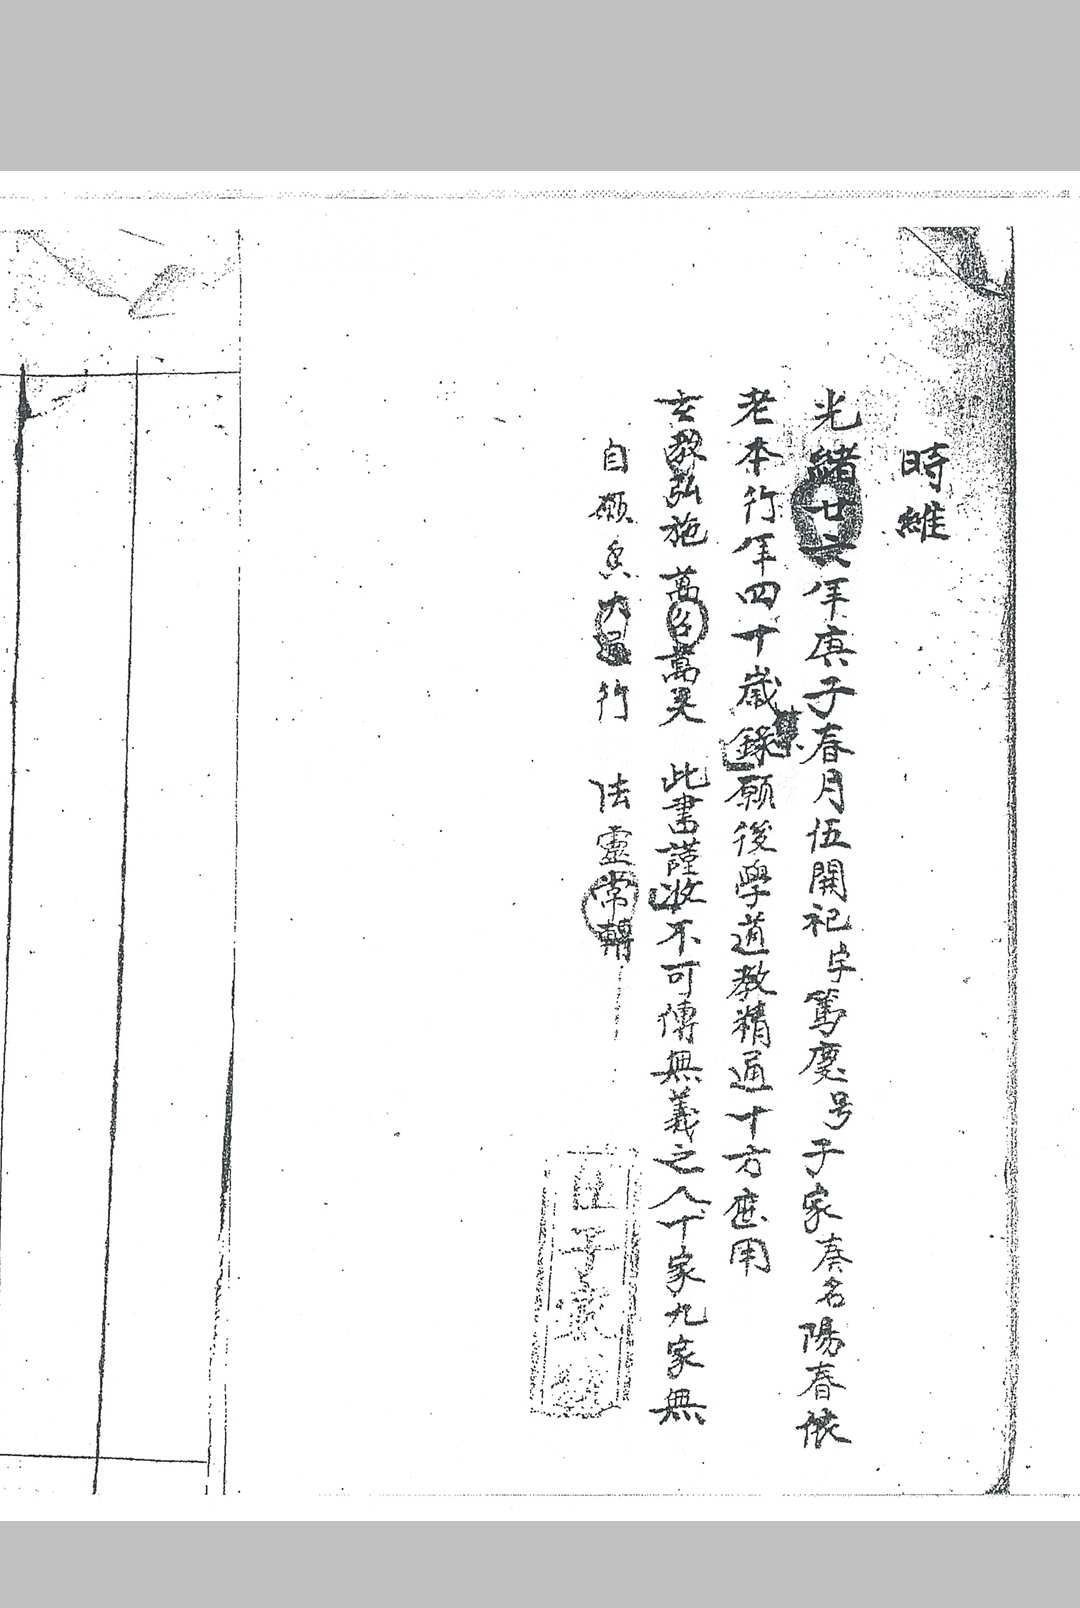 時維
光緒廿六年庚子春月伍開祀字篤慶号子家奏名陽春依
老本行年四十歲錄願後學道教精通十方應用
玄教弘施 萬名萬灵 此書謹收不可傳無義之人十家九家無
自願 大通行 法靈常轉
子